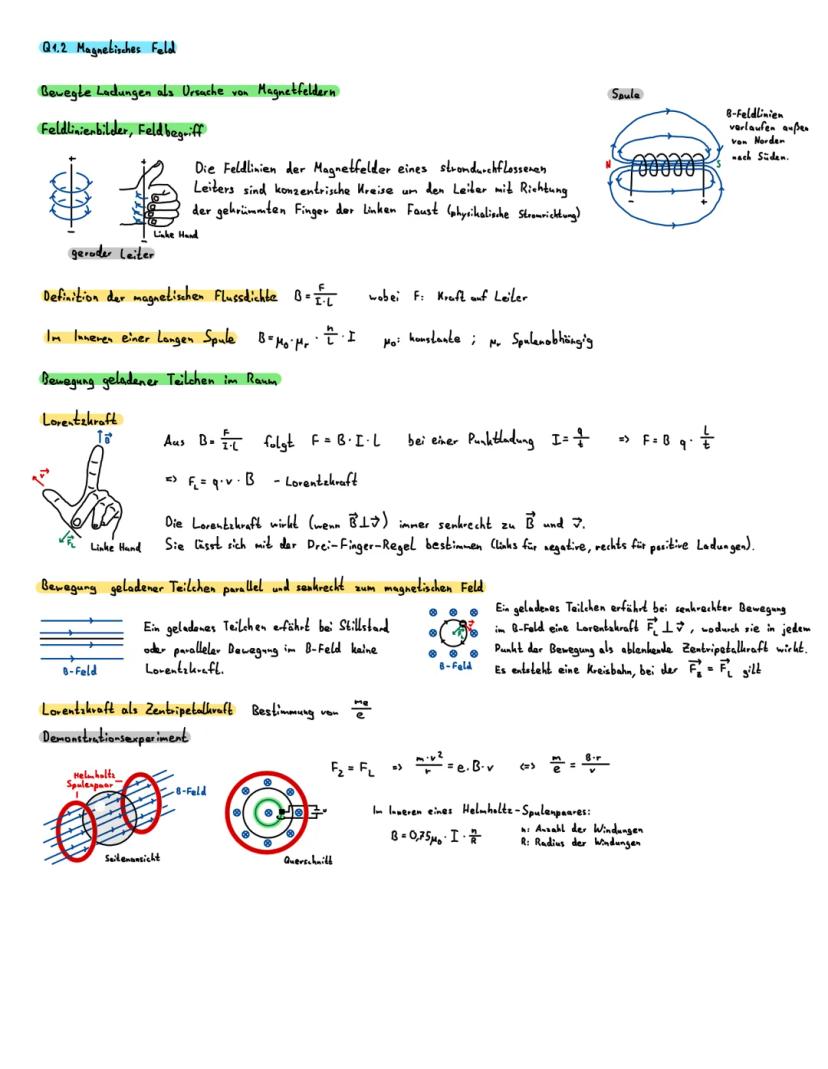 Q1.2 Magnetisches Feld
Bewegte Ladungen als Ursache von Magnetfeldern
Spule
B-Feldlinien
verlaufen außen
von Norden
nach Süden.
N
S
-
+
Feldlinienbilder, Feldbegriff
+
-
+
-
Linke Hand
gerader Leiter
Die Feldlinien der Magnetfelder eines stromdurchflossenen
Leiters sind konzentrische Kreise um den Leiter mit Richtung
der gekrümmten Finger der linken Faust (physikalische Stromrichtung)
Definition der magnetischen Flussdichte B = F/(I·L) wobei F: Kraft auf Leiter
Im Inneren einer langen Spule B = μ₀·μᵣ · n/L · I μ₀: konstante ; μᵣ Spulenabhängig
Bewegung geladener Teilchen im Raum
Lorentzkraft
B⃗
v⃗
F⃗L
Linke Hand
Aus B = F/(I·L) folgt F = B · I · L bei einer Punktladung I = q/t => F = B q · L/t
=> F_L = q · v · B - Lorentzkraft
Die Lorentzkraft wirkt (wenn B⃗⊥v⃗) immer senkrecht zu B⃗ und v⃗.
Sie lässt sich mit der Drei-Finger-Regel bestimmen (links für negative, rechts für positive Ladungen).
Bewegung geladener Teilchen parallel und senkrecht zum magnetischen Feld
B-Feld
Ein geladenes Teilchen erfährt bei Stillstand
oder paralleler Bewegung im B-Feld keine
Lorentzkraft.
B-Feld
Ein geladenes Teilchen erfährt bei senkrechter Bewegung
im B-Feld eine Lorentzkraft F⃗_L ⊥ v⃗, wodurch sie in jedem
Punkt der Bewegung als ablenkende Zentripetalkraft wirkt.
Es entsteht eine Kreisbahn, bei der F⃗_Z = F⃗_L gilt
Lorentzkraft als Zentripetalkraft Bestimmung von me/e
Demonstrationsexperiment
Helmholtz
Spulenpaar
B-Feld
Seitenansicht
Querschnitt
F_Z = F_L => m·v²/r = e·B·v <=> m/e = B·r/v
Im Inneren eines Helmholtz-Spulenpaares:
B = 0,75μ₀ · I · n/R
n: Anzahl der Windungen
R: Radius der Windungen